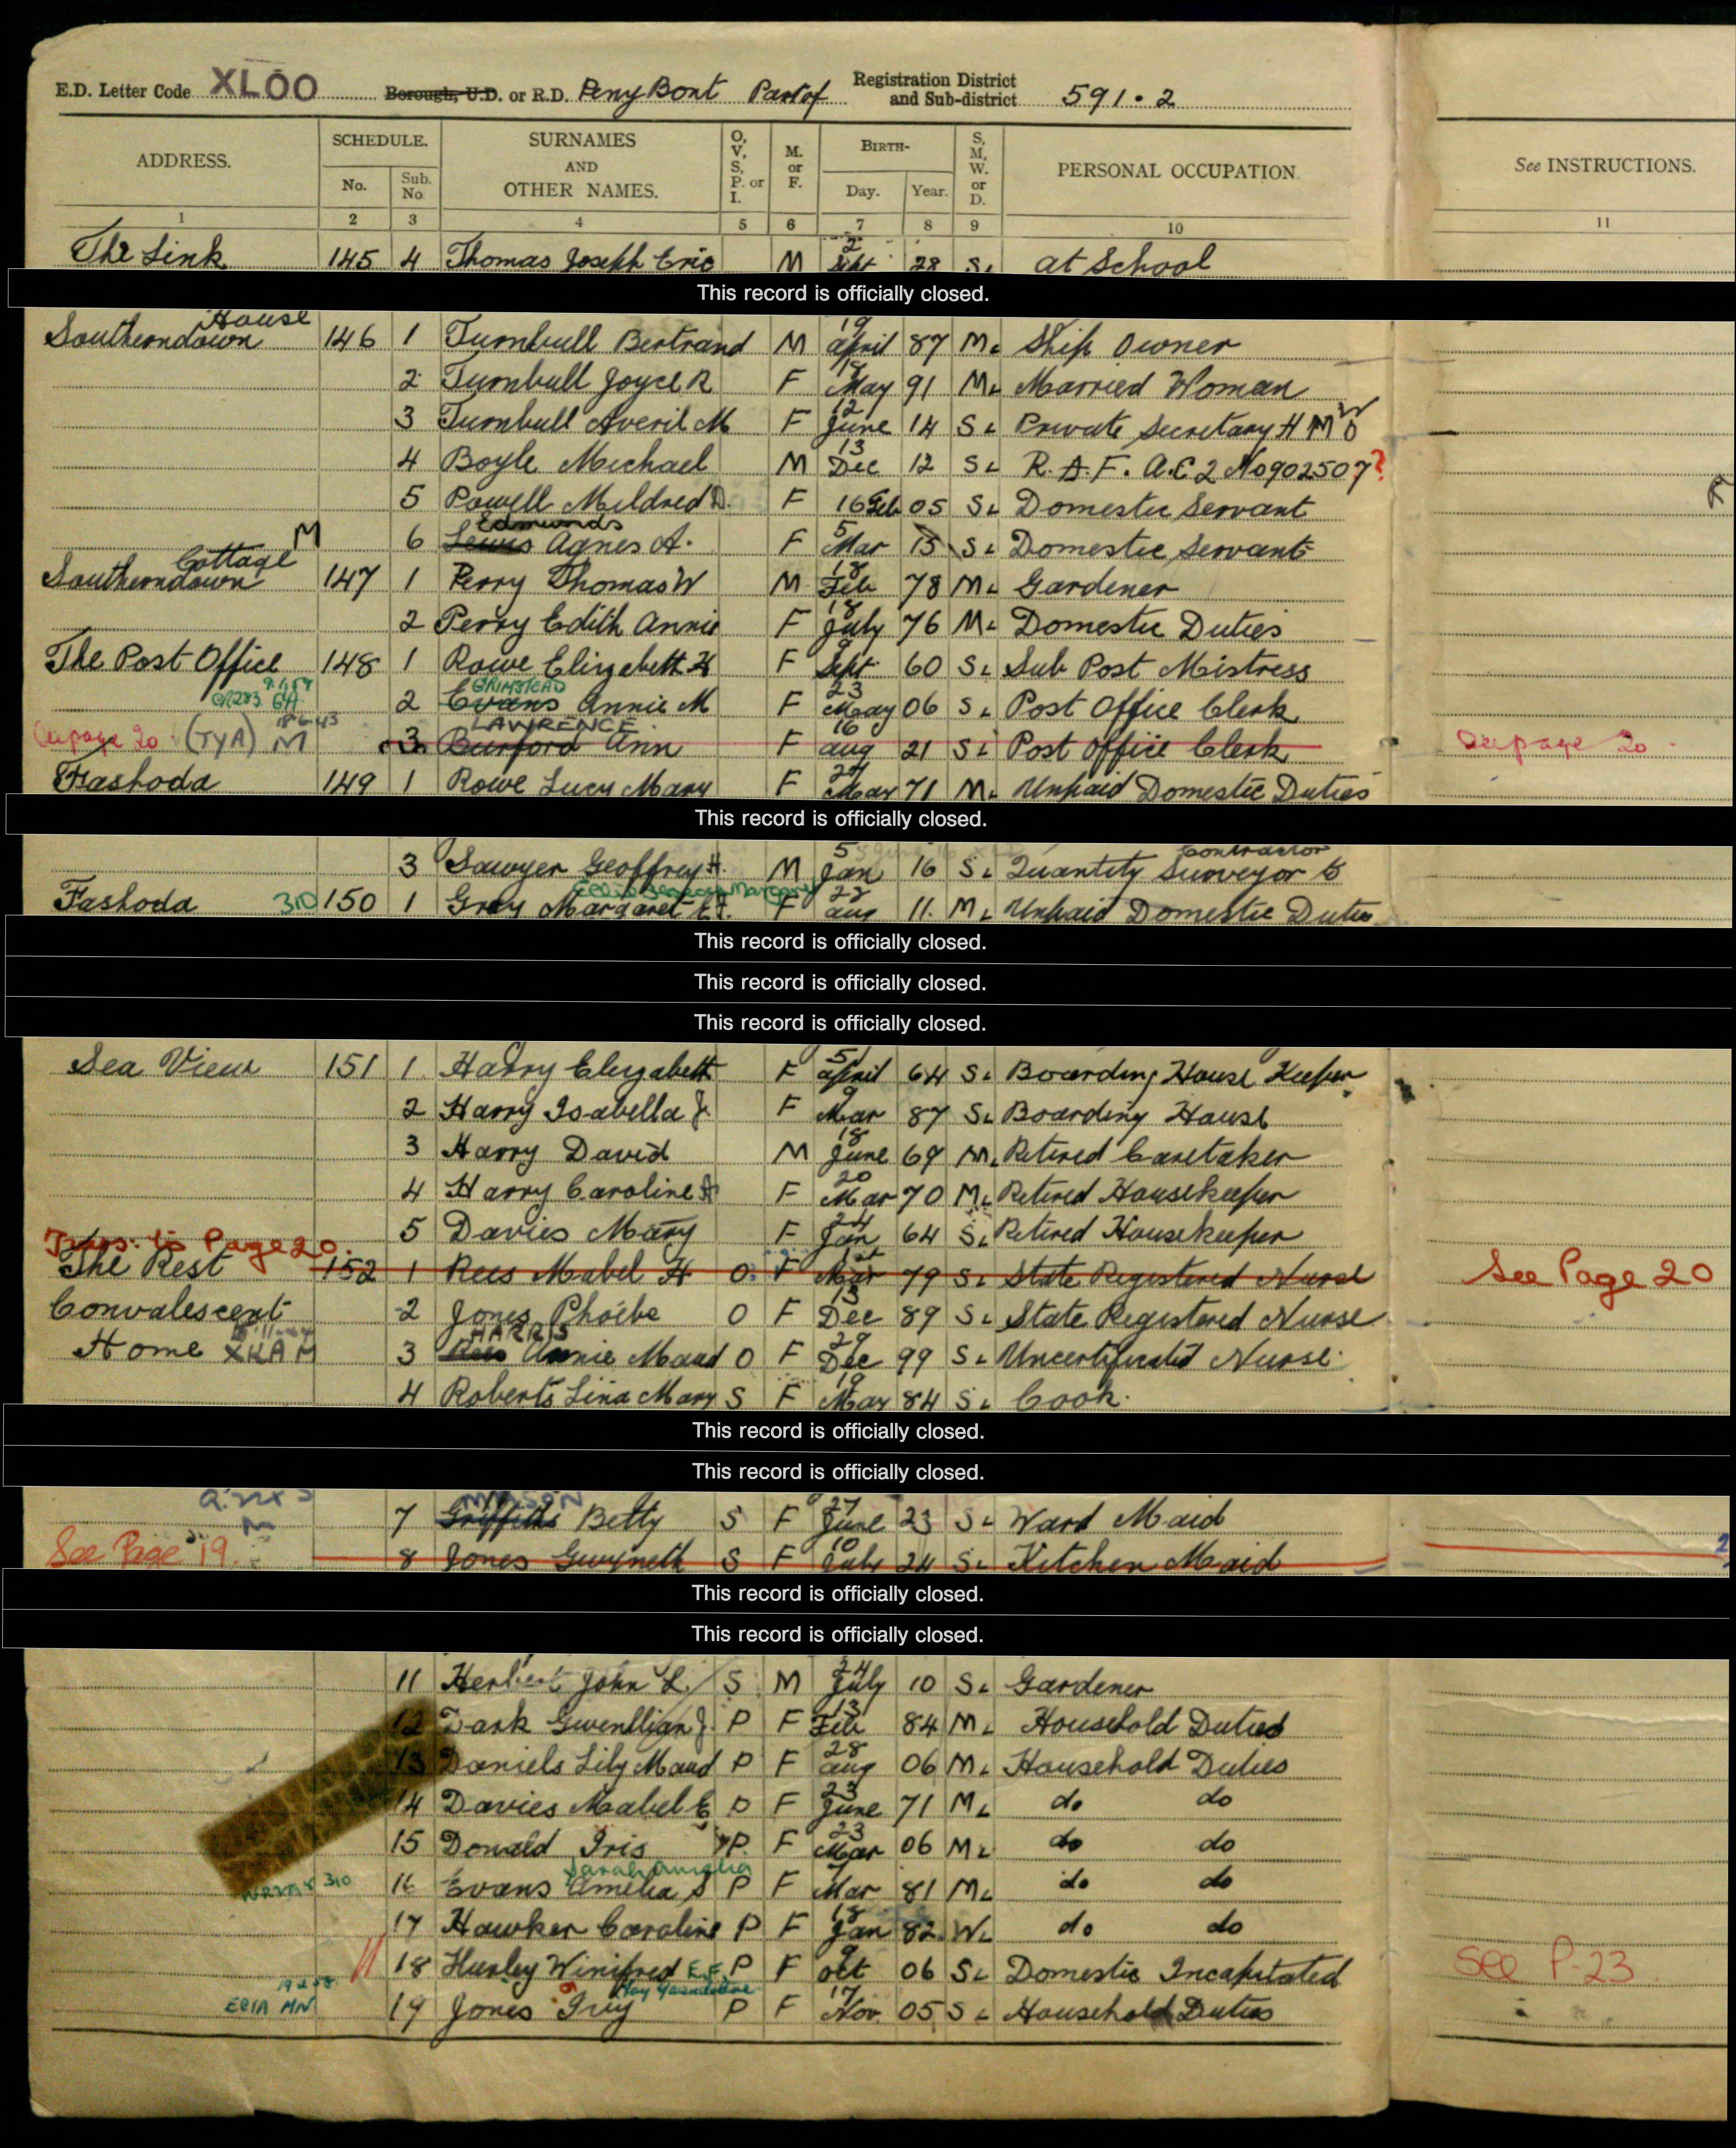 E.D. Letter Code XLOO Borough, U.D. or R.D. Peny Bont Part of Registration District and Sub-district 591.2
ADDRESS. SCHEDULE. No. Sub. No. SURNAMES AND OTHER NAMES. O, V, S, P. or I. M. or F. BIRTH- Day. Year. S, M, W. or D. PERSONAL OCCUPATION. See INSTRUCTIONS.
1 2 3 4 5 6 7 8 9 10 11
The Link 145 4 Thomas Joseph Eric M 2 Sept 28 S. at School
This record is officially closed.
Southerndown House 146 1 Turnbull Bertrand M 19 April 87 M. Ship Owner
2 Turnbull Joyce R F 18 May 91 M. Married Woman
3 Turnbull Averil M F 12 June 14 S. Private Secretary H M
4 Boyle Michael M 13 Dec 12 S. R.A.F. A.C2 No 902507?
5 Powell Mildred D. F 16 Feb 05 S. Domestic Servant
M 6 Lewis Edmunds Agnes A. F 5 Mar 15 S. Domestic Servant
Southerndown Cottage 147 1 Perry Thomas W M 18 Feb 78 M. Gardener
2 Perry Edith Annie F 18 July 76 M. Domestic Duties
The Post Office 148 1 Rowe Elizabeth H F 9 Sept 60 S. Sub Post Mistress
2 Evans GRIMSTEAD Annie M F 23 May 06 S. Post Office Clerk
See page 20 (TYA) M 18 6 43 3 Burford LAWRENCE Ann F 16 Aug 21 S. Post Office Clerk See page 20
Fashoda 149 1 Rowe Lucy Mary F 27 May 71 M. Unpaid Domestic Duties
This record is officially closed.
3 Sawyer Geoffrey H. M 5 Jan 16 S. Quantity Surveyor to Contractor
Fashoda 310 150 1 Gray Margaret F 22 Aug 11 M. Unpaid Domestic Duties
This record is officially closed.
This record is officially closed.
This record is officially closed.
Sea View 151 1 Harry Elizabeth F 5 April 64 S. Boarding House Keeper
2 Harry Isabella J. F 9 Mar 87 S. Boarding House
3 Harry David M 18 June 69 M. Retired Caretaker
4 Harry Caroline A F 20 Mar 70 M. Retired Housekeeper
5 Davies Mary F 24 Jan 64 S. Retired Housekeeper
Trans. to Page 20.
The Rest 152 1 Rees Mabel H O. F 1st Mar 79 S. State Registered Nurse See Page 20
Convalescent 2 Jones Phoebe O F 13 Dec 89 S. State Registered Nurse
Home XKA M 3 Rees HARRIS Annie Maud O F 29 Dec 99 S. Uncertificated Nurse.
4 Roberts Lina Mary S F 19 May 84 S. Cook.
This record is officially closed.
This record is officially closed.
7 Griffiths Betty S F 27 June 23 S. Ward Maid
See Page 19. 8 Jones Gwyneth S F 10 July 24 S. Kitchen Maid
This record is officially closed.
This record is officially closed.
11 Herbert John L. S M 24 July 10 S. Gardener
12 Gwenllian J. P F 13 Feb 84 M. Household Duties
13 Daniels Lily Maud P F 28 Aug 06 M. Household Duties
14 Davies Mabel E P F 23 June 71 M. do do
15 Donald Iris P. F 23 Mar 06 M. do do
310 16 Evans Amelia S Sarah Amelia P F 7 Mar 81 M. do do
17 Hawker Caroline P F 18 Jan 82 W. do do
18 Hurley Winifred E.F. P F 9 Oct 06 S. Domestic Incapitated See P.23
19 Jones Ivy P F 17 Nov. 05 S. Household Duties